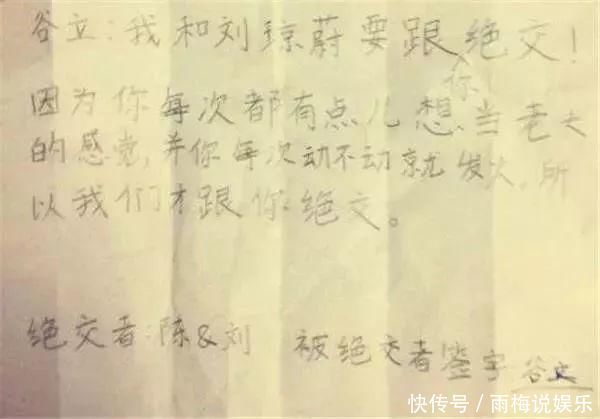 谷立:我和刘琼蔚要跟你绝交!
因为你每次都有点儿想当老大
的感觉,并你每次动不动就发火,所
以我们才跟你绝交。
绝交者:陈&刘 被绝交者签字 谷立
快传号/雨梅说娱乐